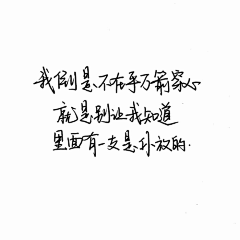 我倒是不在乎万箭穿心
就是别让我知道
里面有一支是你放的.